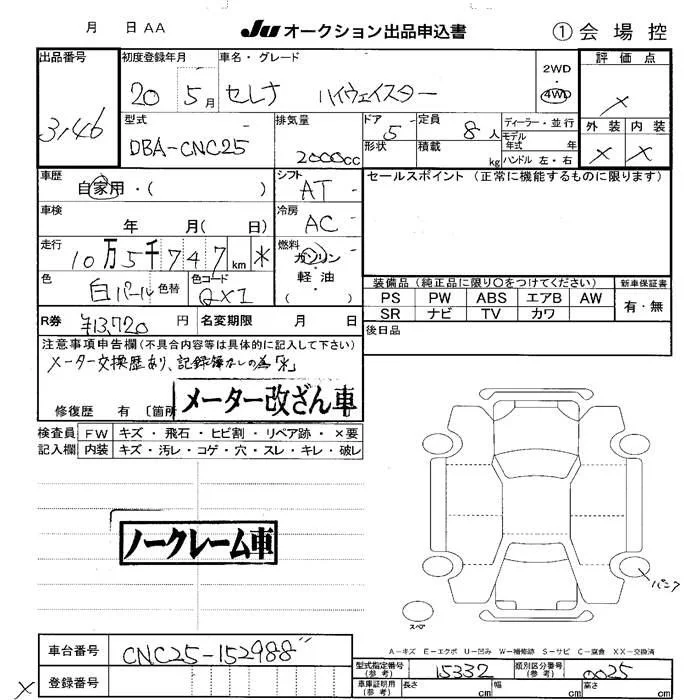 月 日 AA JU オークション出品申込書 ① 会場控
出品番号 初度登録年月 車名・グレード 2WD・4WD 評価点
3146 20 5月 セレナ ハイウェイスター ×
型式 排気量 ドア 定員 ディーラー・並行 外装 内装
DBA-CNC25 2000cc 5 8人 モデル年式 年 × ×
形状 積載 kg ハンドル 左・右
車歴 シフト セールスポイント (正常に機能するものに限ります)
自家用・( ) AT
車検 冷房
年 月( 日) AC
走行 燃料
10万5千747km * ガソリン・軽油( )
色 色替 色コード 装備品 (純正品に限り○をつけてください) 新車保証書
白パール QX1 PS PW ABS エアB AW 有・無
SR ナビ TV カワ
R券 ¥13,720円 名変期限 月 日 後日品
注意事項申告欄(不具合内容等は具体的に記入して下さい)
メーター交換歴あり、記録簿なしの為「*」
修復歴 有 〔箇所 メーター改ざん車
検査員記入欄 FW キズ・飛石・ヒビ割・リペア跡・×要
内装 キズ・汚レ・コゲ・穴・スレ・キレ・破レ
ノークレーム車
パンク
スペア
A-キズ E-エクボ U-凹み W-補修跡 S-サビ C-腐食 XX-交換済
車台番号 CNC25-152988〃
型式指定番号(参考) 15332 類別区分番号(参考) 0025
× 登録番号 車庫証明用(参考) 長さ cm 幅 cm 高さ cm